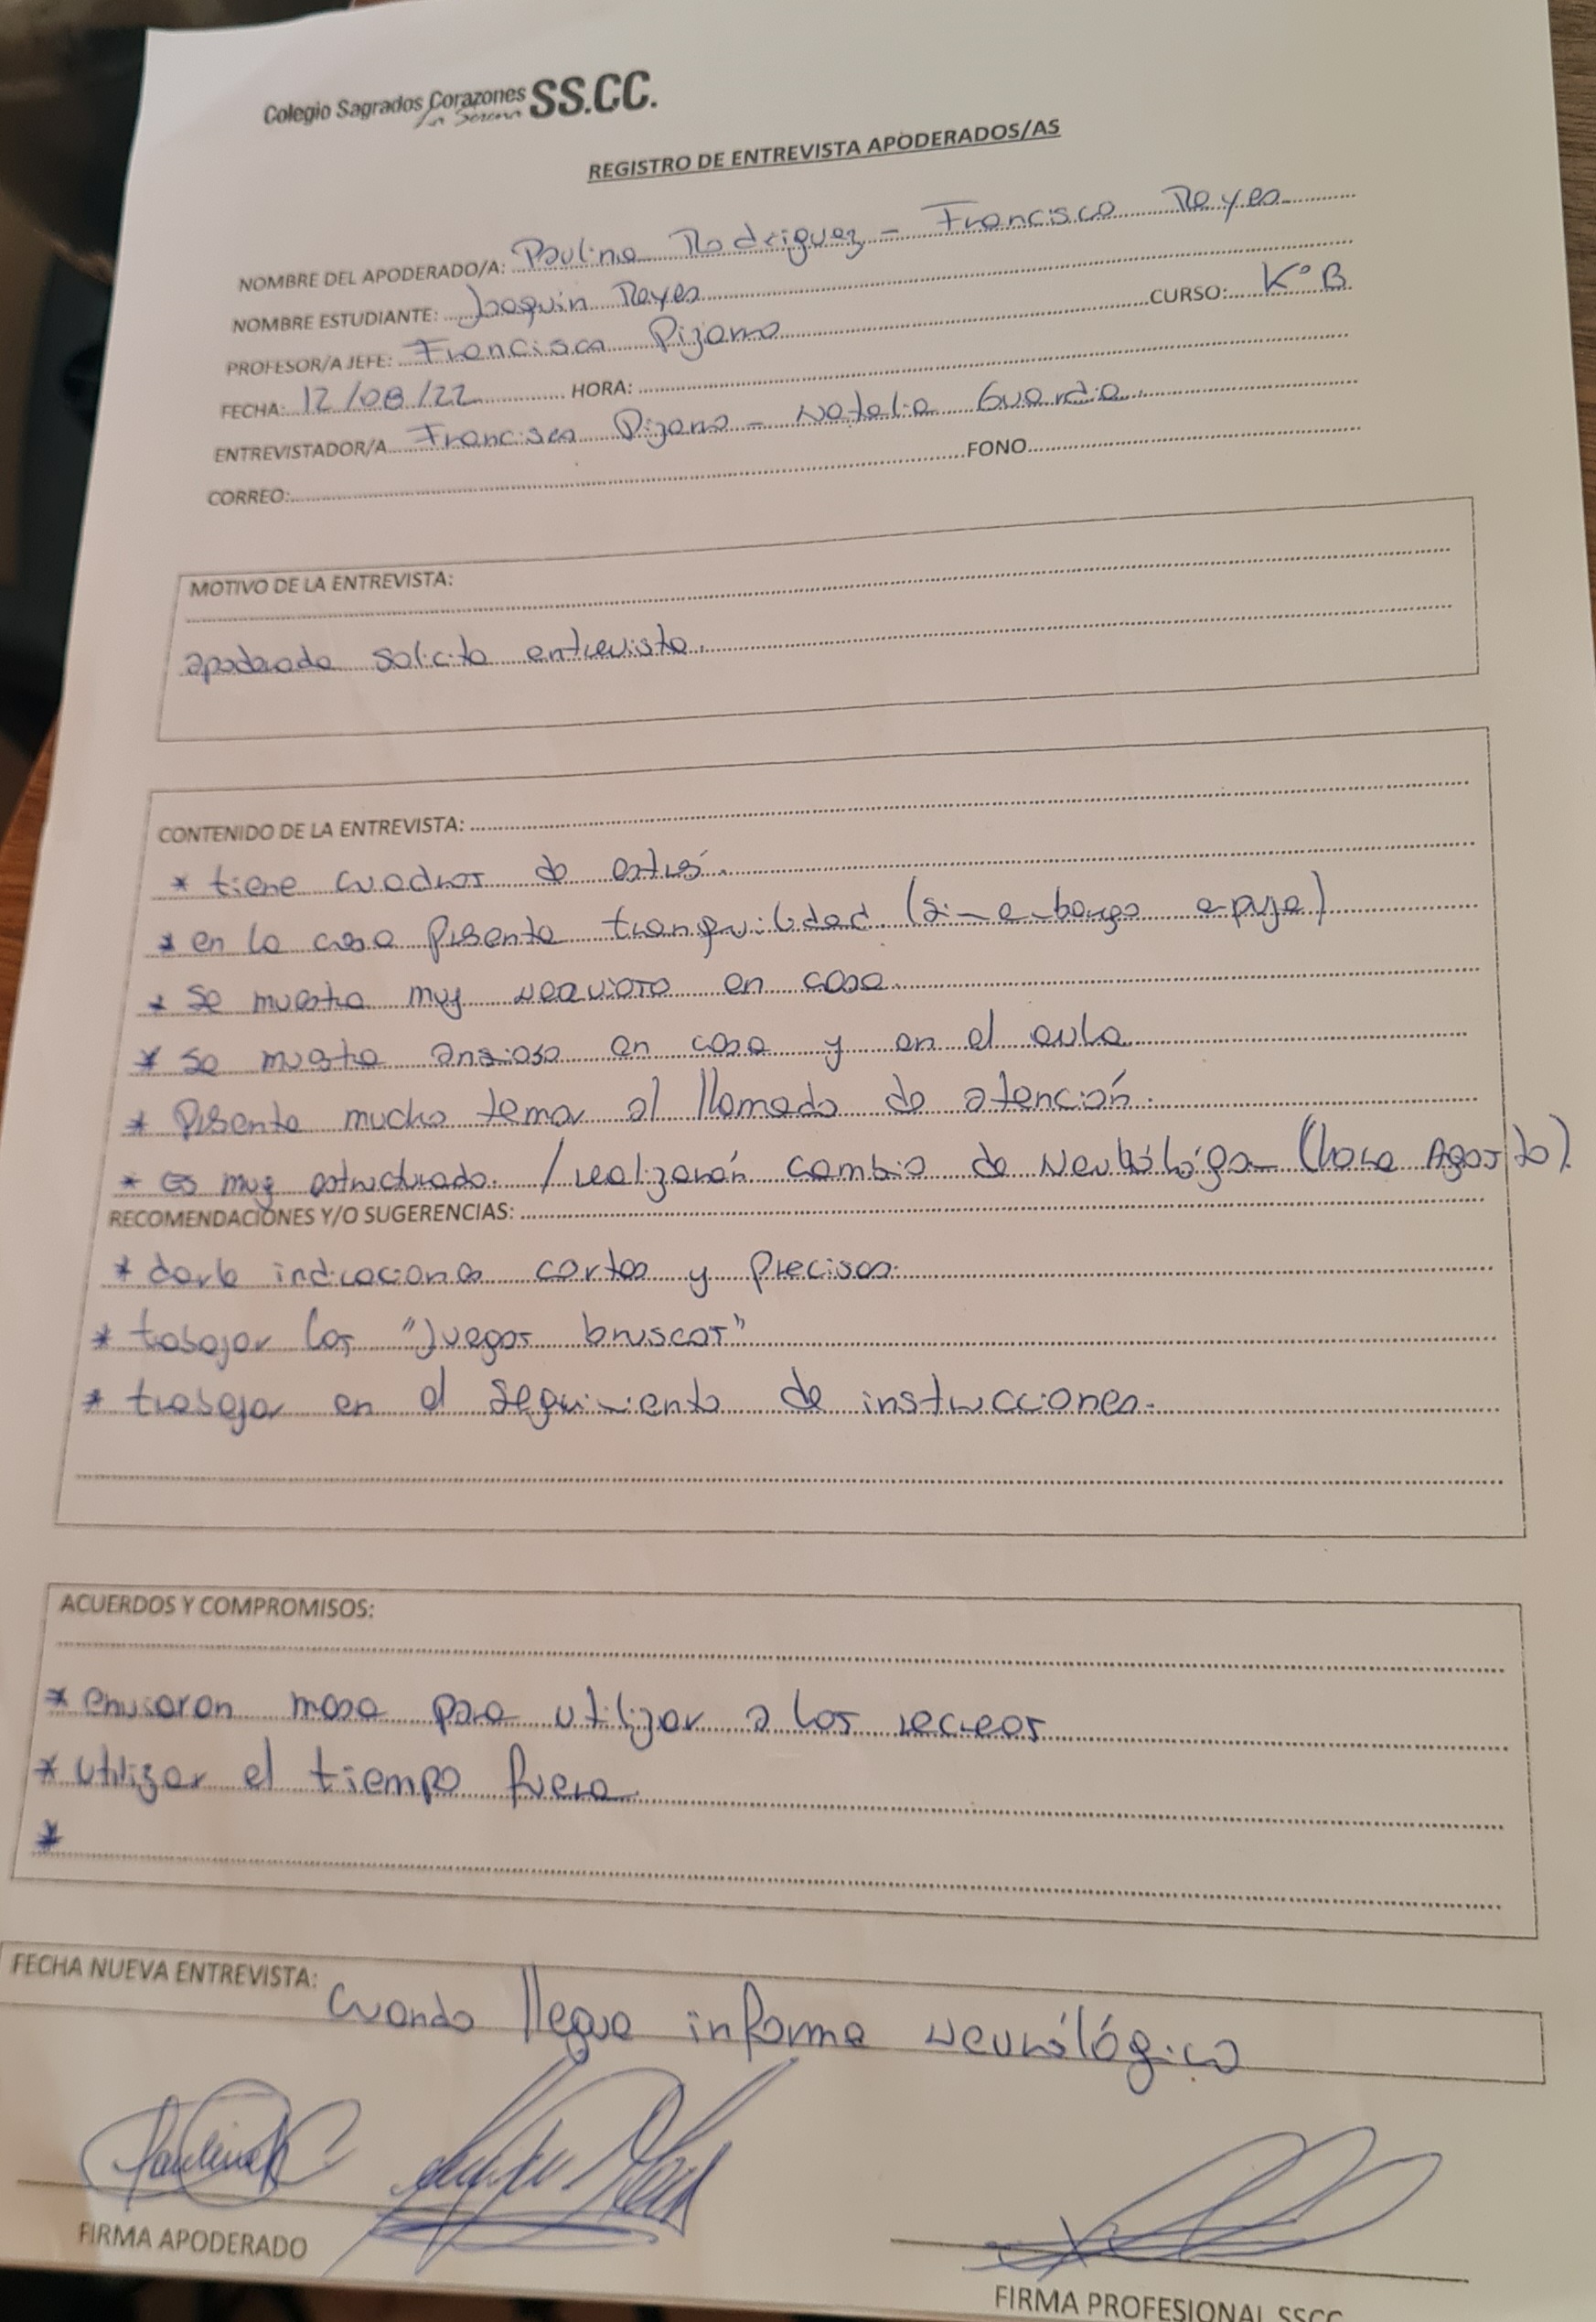 Colegio Sagrados Corazones SS.CC.
La Serena
REGISTRO DE ENTREVISTA APODERADOS/AS
NOMBRE DEL APODERADO/A: Paulina Rodriguez - Francisco Reyes
NOMBRE ESTUDIANTE: Joaquín Reyes
CURSO: K° B
PROFESOR/A JEFE: Francisca Pizarro
FECHA: 12/08/22 HORA:
ENTREVISTADOR/A Francisca Pizarro - Natalia Guardia
CORREO: FONO
MOTIVO DE LA ENTREVISTA:
apoderada solicita entrevista.
CONTENIDO DE LA ENTREVISTA:
* tiene cuadros de estrés.
* en la casa presenta tranquilidad (sin embargo empuja)
* se muestra muy nervioso en casa.
* se muestra ansioso en casa y en el aula.
* Presenta mucho temor al llamado de atención.
* es muy estructurado. / realizarán cambio de Neurólogo (hora Agosto).
RECOMENDACIONES Y/O SUGERENCIAS:
* darle indicaciones cortas y precisas.
* trabajar los "juegos bruscos"
* trabajar en el seguimiento de instrucciones.
ACUERDOS Y COMPROMISOS:
* enviaron masa para utilizar a los recreos
* utilizar el tiempo fuera.
*
FECHA NUEVA ENTREVISTA: Cuando llegue informe neurológico
FIRMA APODERADO
FIRMA PROFESIONAL SSCC